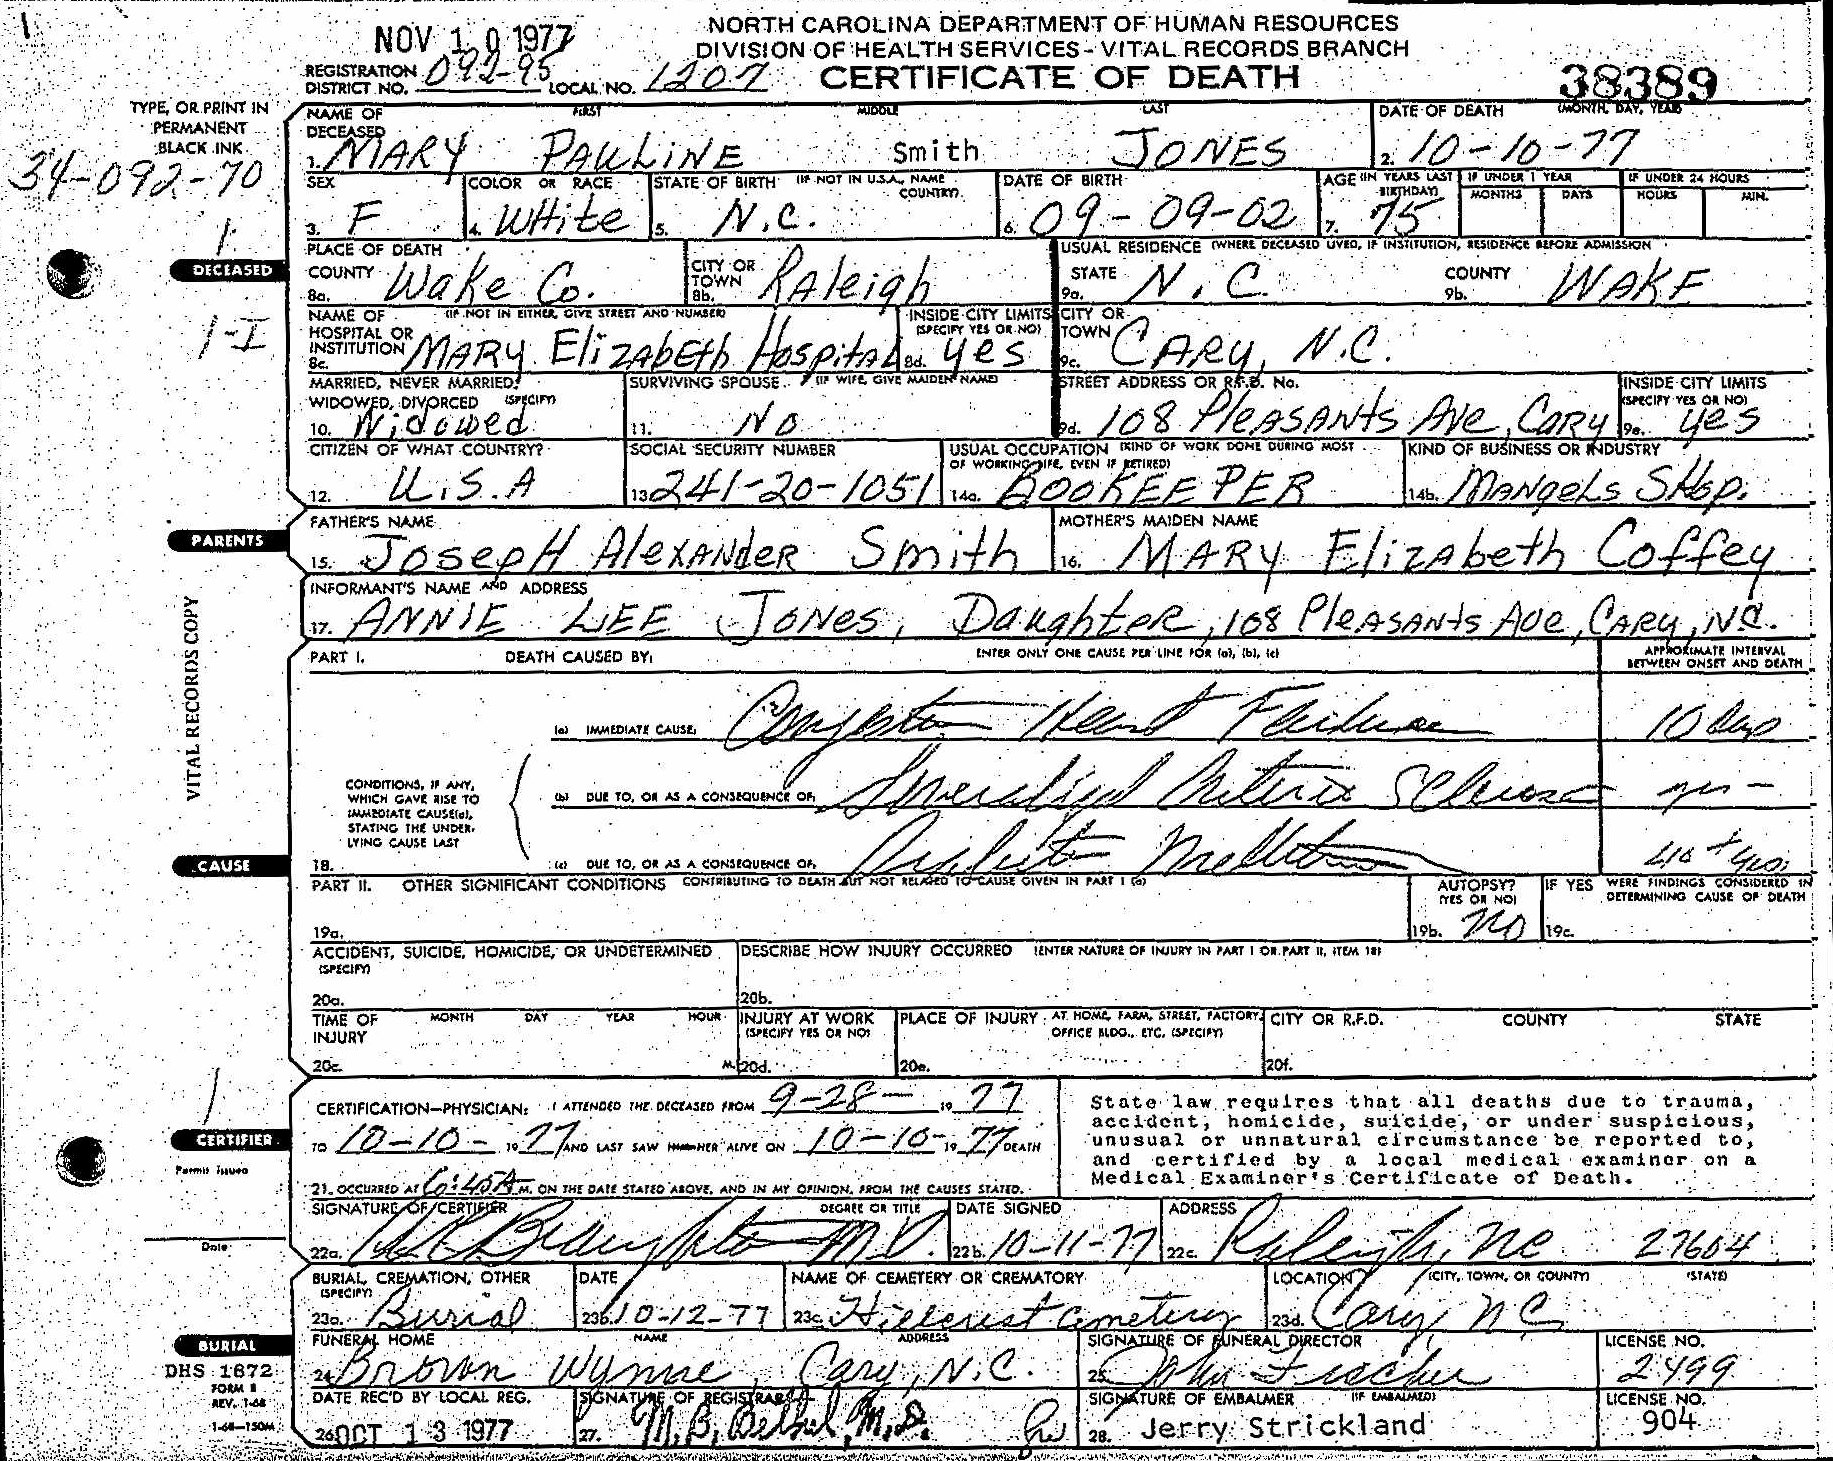 NOV 10 1977
NORTH CAROLINA DEPARTMENT OF HUMAN RESOURCES
DIVISION OF HEALTH SERVICES - VITAL RECORDS BRANCH
REGISTRATION DISTRICT NO. 092-95 LOCAL NO. 1207 CERTIFICATE OF DEATH 38389
TYPE, OR PRINT IN
PERMANENT
BLACK INK
34-092-70
NAME OF DECEASED FIRST MIDDLE LAST DATE OF DEATH (MONTH, DAY, YEAR)
1. MARY PAULINE Smith JONES 2. 10-10-77
SEX COLOR OR RACE STATE OF BIRTH (IF NOT IN U.S.A., NAME COUNTRY) DATE OF BIRTH AGE (IN YEARS LAST BIRTHDAY) IF UNDER 1 YEAR MONTHS DAYS IF UNDER 24 HOURS HOURS MIN.
3. F 4. WHite 5. N.C. 6. 09-09-02 7. 75
1
DECEASED
PLACE OF DEATH USUAL RESIDENCE (WHERE DECEASED LIVED, IF INSTITUTION, RESIDENCE BEFORE ADMISSION
COUNTY 8a. Wake Co. CITY OR TOWN 8b. RALeigh STATE 9a. N.C. COUNTY 9b. WAKE
1-I
NAME OF HOSPITAL OR INSTITUTION (IF NOT IN EITHER, GIVE STREET AND NUMBER) INSIDE CITY LIMITS (SPECIFY YES OR NO) CITY OR TOWN
8c. MARY ElizAbEth HospitAL 8d. yes 9c. CARy, N.C.
MARRIED, NEVER MARRIED, WIDOWED, DIVORCED (SPECIFY) SURVIVING SPOUSE (IF WIFE, GIVE MAIDEN NAME) STREET ADDRESS OR R.F.D. No. INSIDE CITY LIMITS (SPECIFY YES OR NO)
10. Widowed 11. NO 9d. 108 PleASANts Ave, CARy 9e. yes
CITIZEN OF WHAT COUNTRY? SOCIAL SECURITY NUMBER USUAL OCCUPATION (KIND OF WORK DONE DURING MOST OF WORKING LIFE, EVEN IF RETIRED) KIND OF BUSINESS OR INDUSTRY
12. U.S.A 13. 241-20-1051 14a. BOOKEEPER 14b. MANgeLs SHop.
PARENTS
FATHER'S NAME MOTHER'S MAIDEN NAME
15. JosepH AlexANdeR Smith 16. MARy Elizabeth Coffey
INFORMANT'S NAME AND ADDRESS
17. ANNIE LEE JONes, DaughteR, 108 PleASANts Ave, CARy, N.C.
VITAL RECORDS COPY
PART I. DEATH CAUSED BY: ENTER ONLY ONE CAUSE PER LINE FOR (a), (b), (c) APPROXIMATE INTERVAL BETWEEN ONSET AND DEATH
(a) IMMEDIATE CAUSE, Congestive Heart Failure 10 days
CONDITIONS, IF ANY,
WHICH GAVE RISE TO
IMMEDIATE CAUSE(a),
STATING THE UNDER-
LYING CAUSE LAST
(b) DUE TO, OR AS A CONSEQUENCE OF, Generalized Arterio Sclerosis yrs -
CAUSE
18. (c) DUE TO, OR AS A CONSEQUENCE OF, Diabetes Mellitus
PART II. OTHER SIGNIFICANT CONDITIONS CONTRIBUTING TO DEATH BUT NOT RELATED TO CAUSE GIVEN IN PART I (a) AUTOPSY? (YES OR NO) IF YES WERE FINDINGS CONSIDERED IN DETERMINING CAUSE OF DEATH
19a. 19b. NO 19c.
ACCIDENT, SUICIDE, HOMICIDE, OR UNDETERMINED (SPECIFY) DESCRIBE HOW INJURY OCCURRED (ENTER NATURE OF INJURY IN PART I OR PART II, ITEM 18)
20a. 20b.
TIME OF INJURY MONTH DAY YEAR HOUR INJURY AT WORK (SPECIFY YES OR NO) PLACE OF INJURY AT HOME, FARM, STREET, FACTORY, OFFICE BLDG., ETC. (SPECIFY) CITY OR R.F.D. COUNTY STATE
20c. M. 20d. 20e. 20f.
1
CERTIFIER
Permit issued
Date
CERTIFICATION—PHYSICIAN: I ATTENDED THE DECEASED FROM 9-28- 19 77
TO 10-10- 19 77 AND LAST SAW HIM/HER ALIVE ON 10-10- 19 77 DEATH
21. OCCURRED AT 6:45A M. ON THE DATE STATED ABOVE, AND IN MY OPINION, FROM THE CAUSES STATED.
State law requires that all deaths due to trauma,
accident, homicide, suicide, or under suspicious,
unusual or unnatural circumstance be reported to,
and certified by a local medical examiner on a
Medical Examiner's Certificate of Death.
SIGNATURE OF CERTIFIER DEGREE OR TITLE DATE SIGNED ADDRESS
22a. M.D. 22b. 10-11-77 22c. Raleigh, NC 27604
BURIAL, CREMATION, OTHER (SPECIFY) DATE NAME OF CEMETERY OR CREMATORY LOCATION (CITY, TOWN, OR COUNTY) (STATE)
23a. Burial 23b. 10-12-77 23c. Hillcrest Cemetery 23d. Cary, NC
BURIAL
DHS 1872
FORM 8
REV. 1-68
1-68-150M
FUNERAL HOME NAME ADDRESS SIGNATURE OF FUNERAL DIRECTOR LICENSE NO.
24. Brown Wynne, Cary, N.C. 25. John 2499
DATE REC'D BY LOCAL REG. SIGNATURE OF REGISTRAR SIGNATURE OF EMBALMER (IF EMBALMED) LICENSE NO.
26. OCT 13 1977 27. M.B. M.D. 28. Jerry Strickland 904